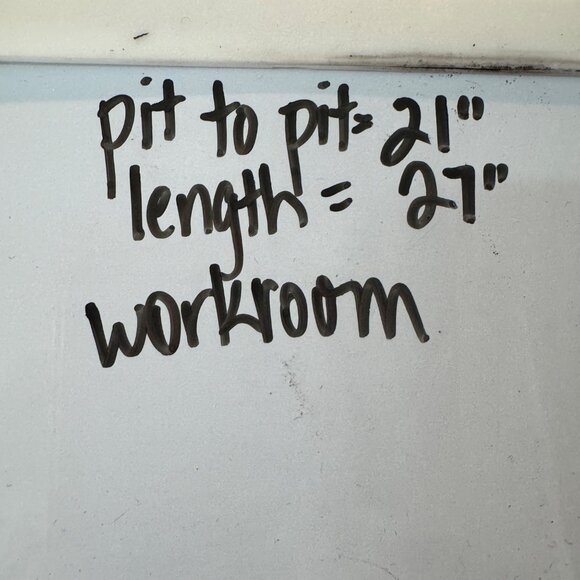 pit to pit= 21"
length = 27"
workroom